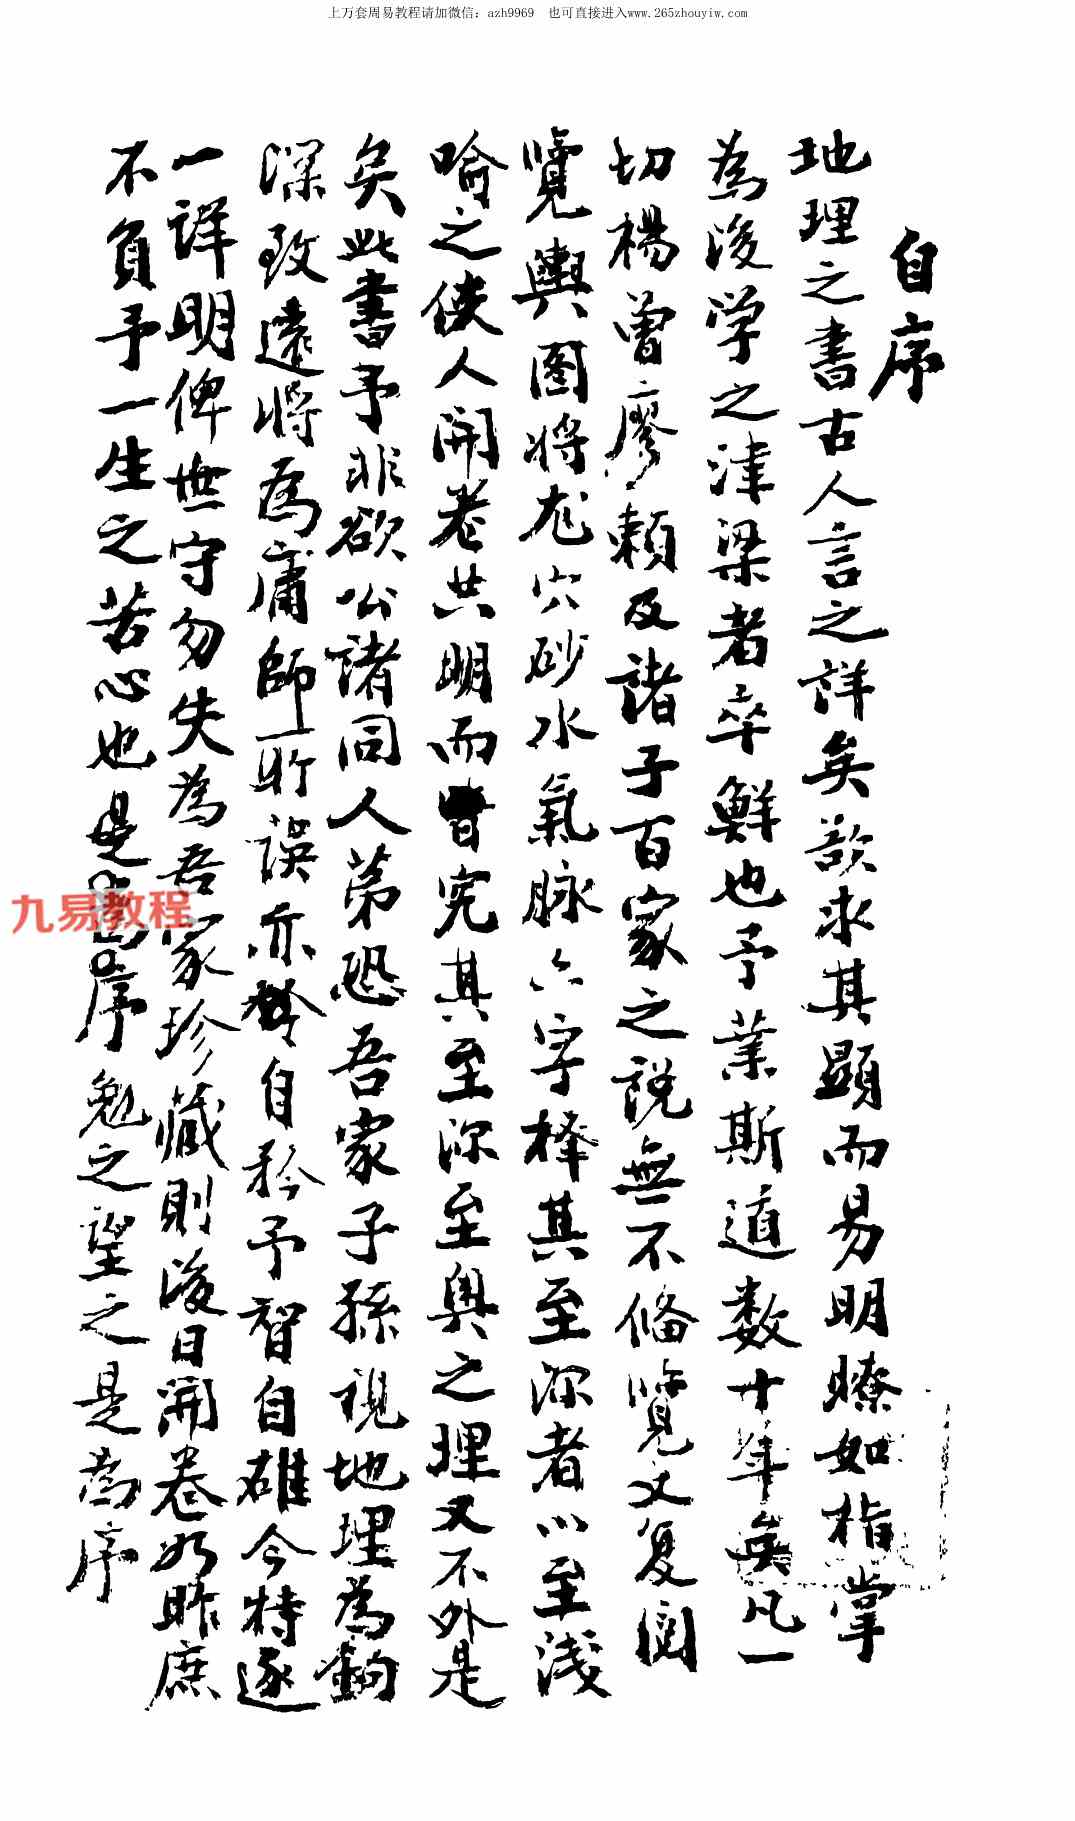 上万套周易教程请加微信：azh9969 也可直接进入www.265zhouyiw.com
自序
地理之書古人言之詳矣欲求其顯而易明瞭如指掌
為後学之津梁者卒鮮也予業斯道数十年矣凡一
切楊曾廖賴及諸子百家之説無不俻覽文复閲
覽輿圖將龙穴砂水氣脉六字擇其至深者以至淺
喻之使人開卷共明而曾究其至深至奧之理又不外是
矣此書予非欲公諸同人苐恐吾家子孫視地理為鈎
深致遠將為庸師所誤亦非自矜予智自雄今特逐
一詳明俾世守勿失為吾家珍藏則後日開卷如昨庶
不負予一生之苦心也是序勉之望之是為序
九易教程